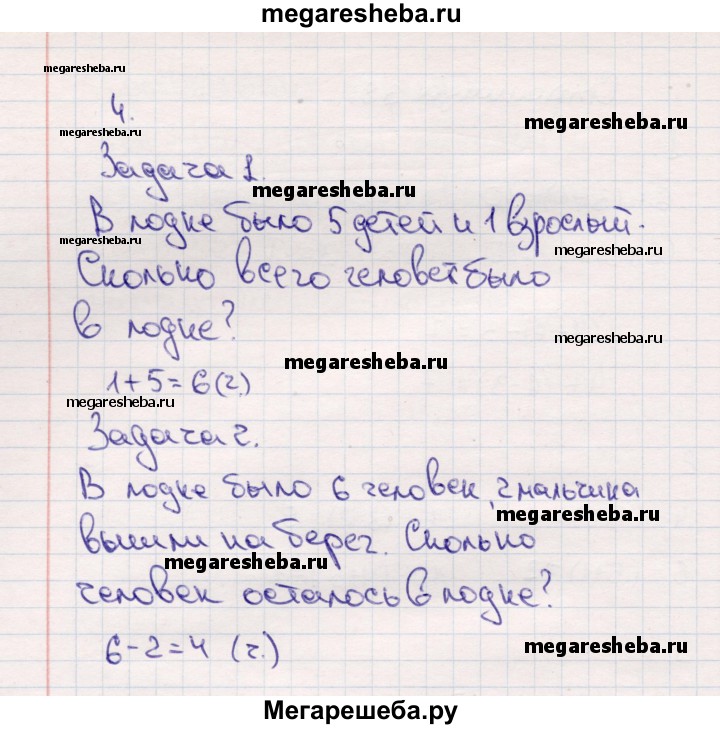 megaresheba.ru
megaresheba.ru
4.
megaresheba.ru
megaresheba.ru
Задача 1.
megaresheba.ru
В лодке было 5 детей и 1 взрослый.
megaresheba.ru
megaresheba.ru
Сколько всего человек было
в лодке?
megaresheba.ru
megaresheba.ru
1+5=6(ч.)
megaresheba.ru
Задача 2.
В лодке было 6 человек, 2 мальчика
megaresheba.ru
вышли на берег. Сколько
megaresheba.ru
человек осталось в лодке?
6-2=4 (ч.)
megaresheba.ru
Мегарешеба.ру